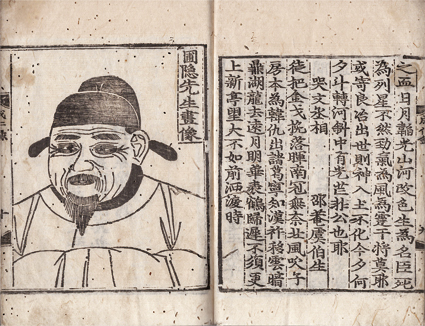 之血日月韜光山河改色生為名臣死
為列星不然勁氣為風為霆干將莫耶
或寄良冶出世則神入土不化今夕何
夕斗轉河斜中有光芒非公也耶
哭文丞相 邵菴虞伯生
徒把金戈挽落暉南冠無奈北風吹子
房本為韓仇出諸葛寧知漢祚移雲暗
鼎湖龍去遠月明華表鶴歸遲不須更
上新亭望大不如前洒淚時
圃隱先生畫像